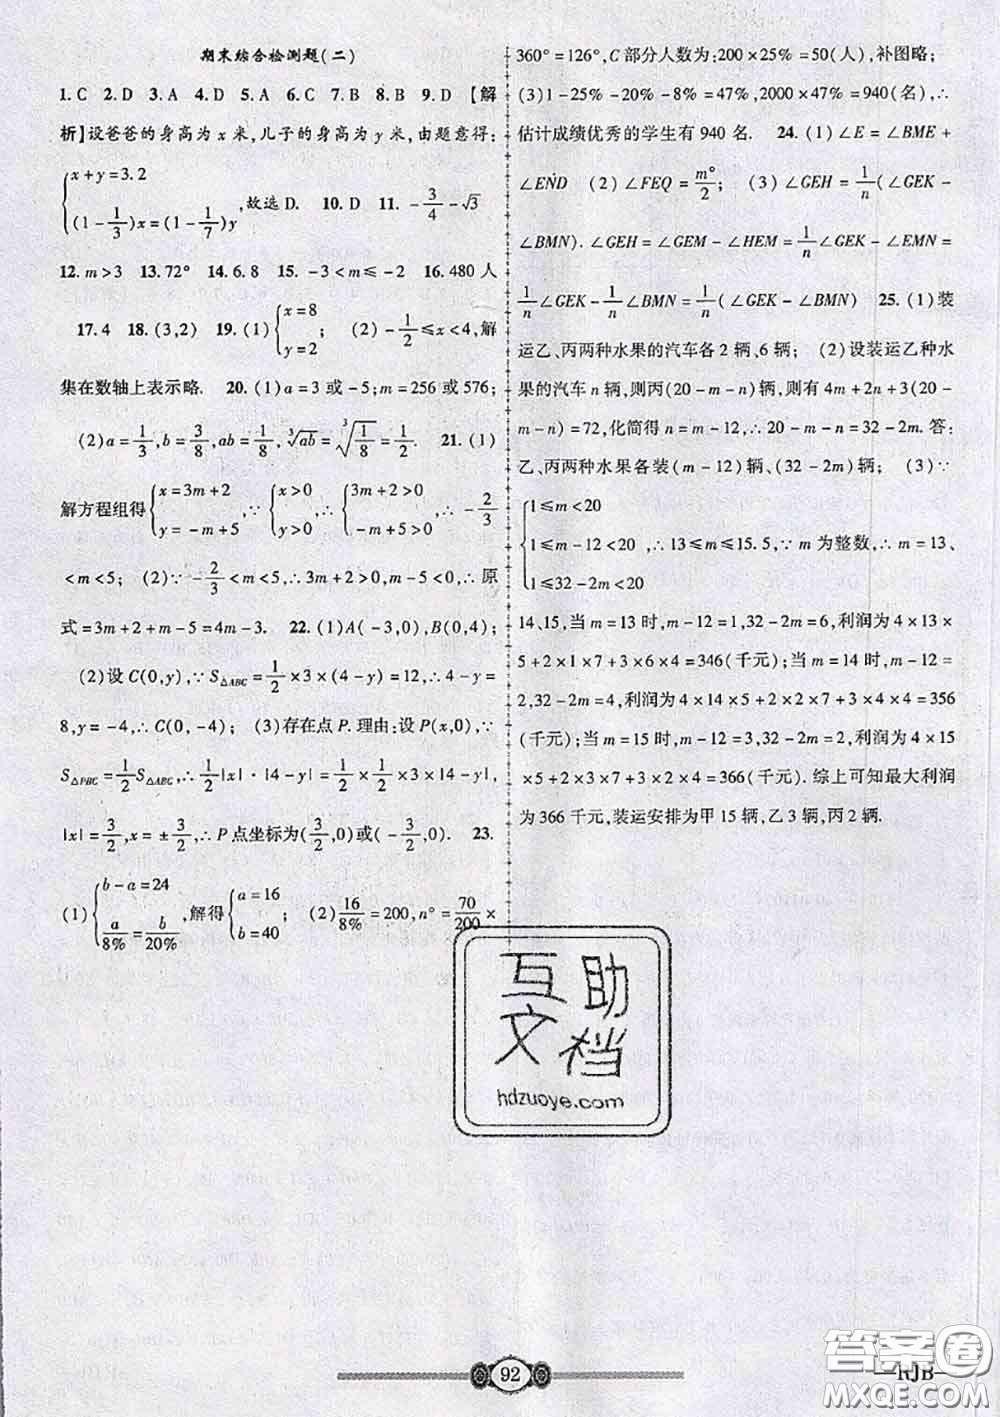 期末综合检测题(二)
1.C 2.D 3.A 4.D 5.A 6.C 7.B 8.B 9.D 【解
析】设爸爸的身高为 x 米,儿子的身高为 y 米,由题意得:
{x+y=3.2
(1-1/3)x=(1-1/7)y ,故选 D. 10.D 11.-3/4-√3
12.m>3 13.72° 14.6.8 15.-3<m≤-2 16.480 人
17.4 18.(3,2) 19.(1){x=8 y=2; (2)-1/2≤x<4,解
集在数轴上表示略. 20.(1)a=3 或-5;m=256 或 576;
(2)a=1/3,b=3/8,ab=1/8,∛ab=∛(1/8)=1/2. 21.(1)
解方程组得{x=3m+2 y=-m+5,∵{x>0 y>0,∴{3m+2>0 -m+5>0,∴-2/3
<m<5; (2)∵-2/3<m<5,∴3m+2>0,m-5<0,∴原
式=3m+2+m-5=4m-3. 22.(1)A(-3,0),B(0,4);
(2)设 C(0,y),∵S△ABC=1/2×3×(4-y)=12,4-y=
8,y=-4,∴C(0,-4); (3)存在点 P.理由:设 P(x,0),∵
S△PBC=1/2S△ABC,∴1/2|x|·|4-y|=1/2×1/2×3×|4-y|,
|x|=3/2,x=±3/2,∴P 点坐标为(3/2,0)或(-3/2,0). 23.
(1){b-a=24 a/8%=b/20%,解得{a=16 b=40; (2)16/8%=200,n°=70/200×
360°=126°,C 部分人数为:200×25%=50(人),补图略;
(3)1-25%-20%-8%=47%,2000×47%=940(名),∴
估计成绩优秀的学生有 940 名. 24.(1)∠E=∠BME+
∠END (2)∠FEQ=m°/2; (3)∠GEH=1/n(∠GEK-
∠BMN).∠GEH=∠GEM-∠HEM=1/n∠GEK-∠EMN=
1/n∠GEK-1/n∠BMN=1/n(∠GEK-∠BMN) 25.(1)装
运乙、丙两种水果的汽车各 2 辆、6 辆; (2)设装运乙种水
果的汽车 n 辆,则丙(20-m-n)辆,则有 4m+2n+3(20-
m-n)=72,化简得 n=m-12,∴20-m-n=32-2m.答:
乙、丙两种水果各装(m-12)辆、(32-2m)辆; (3)∵
{1≤m<20
1≤m-12<20 ,∴13≤m≤15.5,∵m 为整数,∴m=13、
1≤32-2m<20
14、15,当 m=13 时,m-12=1,32-2m=6,利润为 4×13×
5+2×1×7+3×6×4=346(千元);当 m=14 时,m-12=
2,32-2m=4,利润为 4×14×5+2×2×7+3×4×4=356
(千元);当 m=15 时,m-12=3,32-2m=2,利润为 4×15
×5+2×3×7+3×2×4=366(千元).综上可知最大利润
为 366 千元,装运安排为甲 15 辆,乙 3 辆,丙 2 辆.
互助
文档
hdzuoye.com
92
RJB
答案圈
MXQE.COM